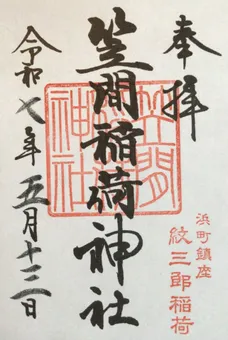 奉拝
笠間稲荷神社
笠間
神社
浜町鎮座
紋三郎稲荷
令和七年五月十三日